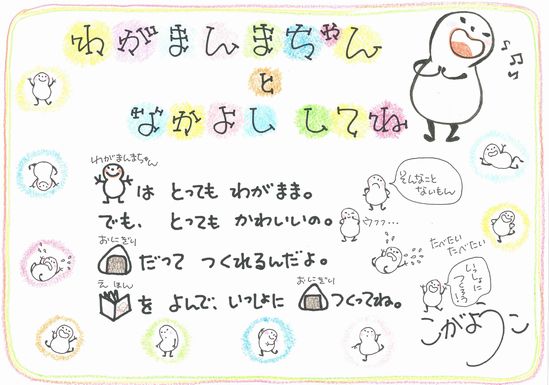 わがまんまちゃん
と
なかよし してね
わがまんまちゃん
は とっても わがまま。
そんなこと
ないもん
でも、とっても かわいいの。
ウァァ…
おにぎり
だって つくれるんだよ。
たべたい
たべたい
えほん
を よんで、いっしょに
おにぎり
つくってね。
いっしょに
つくろう!
こがようこ